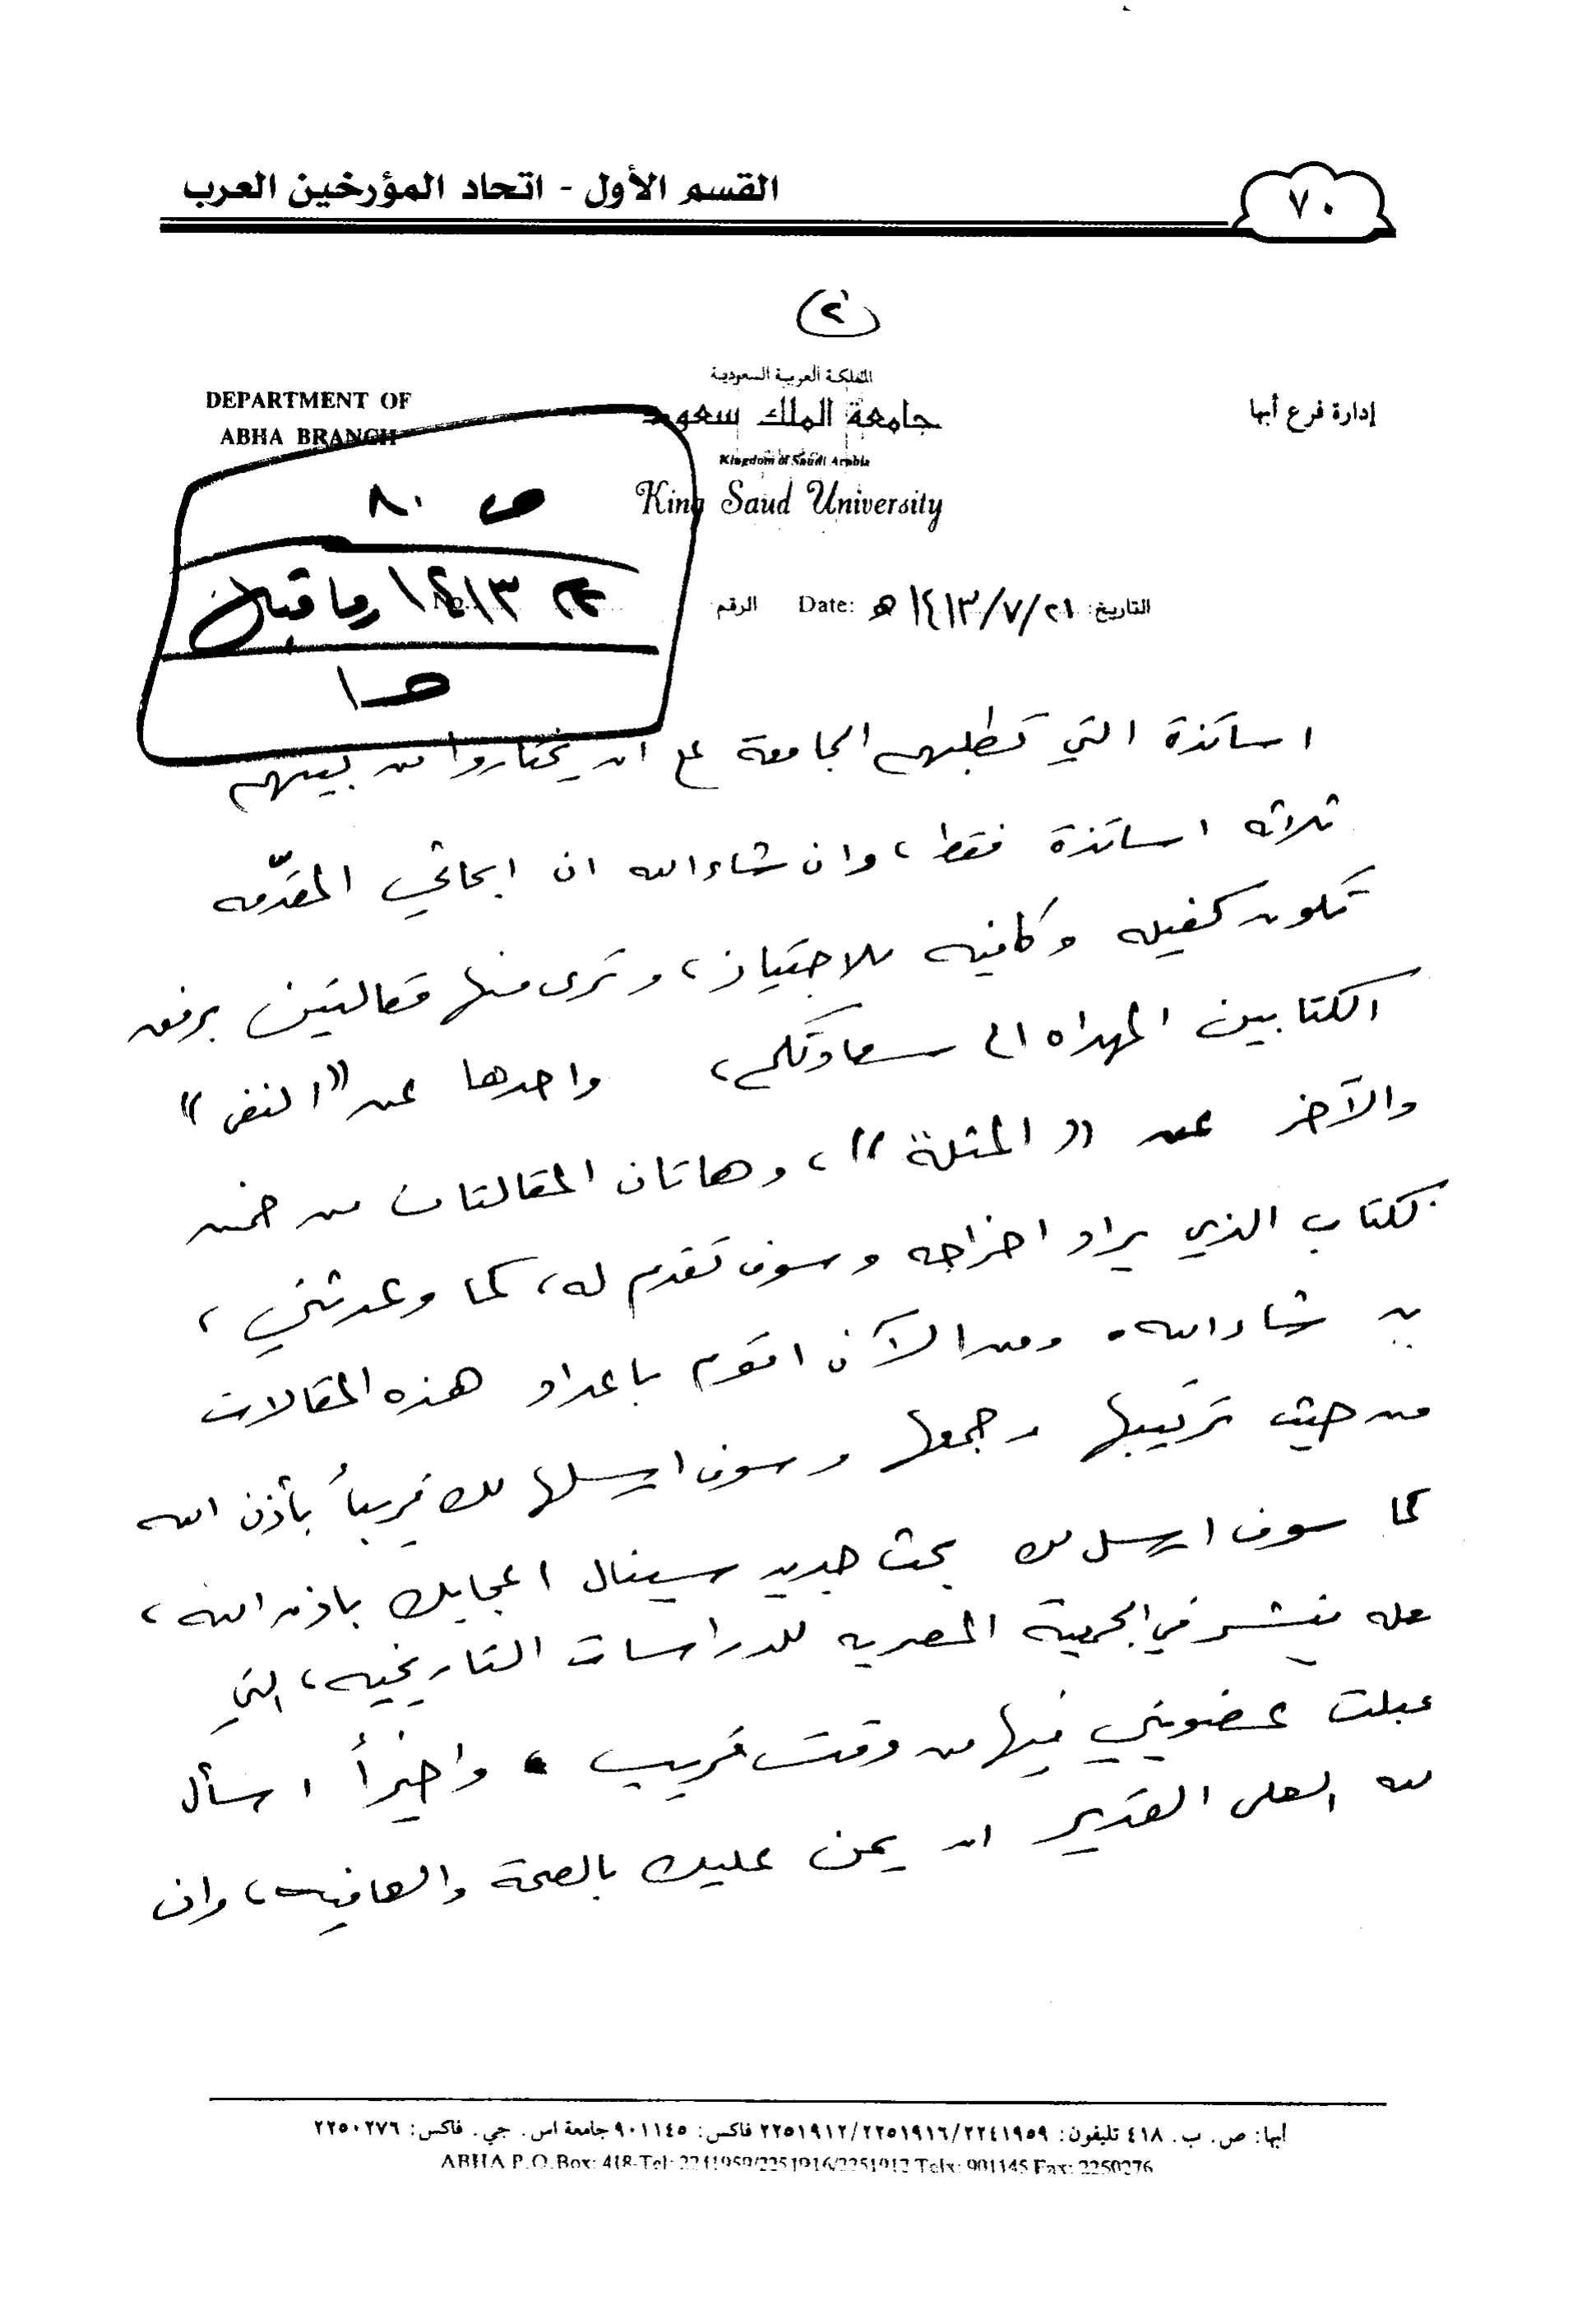 القسم الأول - اتحاد المؤرخين العرب
٧٠
(٢)
المملكة العربية السعودية
DEPARTMENT OF
ABHA BRANCH
جامعة الملك سعود
إدارة فرع أبها
Kingdom of Saudi Arabia
King Saud University
ص ٨٠
١٤١٣ وما قبل
ص١
التاريخ: ٢١/٧/١٤١٣هـ Date: الرقم No.
اساتذة التي تطلبهم الجامعة على ان يختاروا من بينهم
ثلاثه اساتذة فقط، وان شاء الله ان ابحاثي المقدّمه
تكون كفيله وكافيه للاجتياز، وترى منها مقالتين برفق
الكتابين المهداه الى سعادتكم، واحدها عن ((النفي))
والآخر عن ((المثلة))، وهاتان المقالتان من ضمن
لكتاب الذي يراد اخراجه وسوف تقدم له، كما وعدتني،
ن شاء الله. ومن الآن اقوم باعداد هذه المقالات
من حيث ترتيبها وجمعها وسوف ارسلها لك قريباً بأذن الله
كما سوف ارسل لك بحث جديد سينال اعجابك باذن الله،
عله ينشر في الجمعية المصريه للدراسات التاريخيه، التي
قبلت عضويتي فيها من وقت قريب. واخيراً اسأل
لله العلى القدير ان يمن عليك بالصحة والعافيه، وان
أبها: ص. ب. ٤١٨ تليفون: ٢٢٥١٩١٢/٢٢٥١٩١٦/٢٢٤١٩٥٩ فاكس: ٩٠١١٤٥ جامعة اس. جي. فاكس: ٢٢٥٠٢٧٦
ABHA P.O.Box: 418-Tel: 2241959/2251916/2251912 Telx: 901145 Fax: 2250276